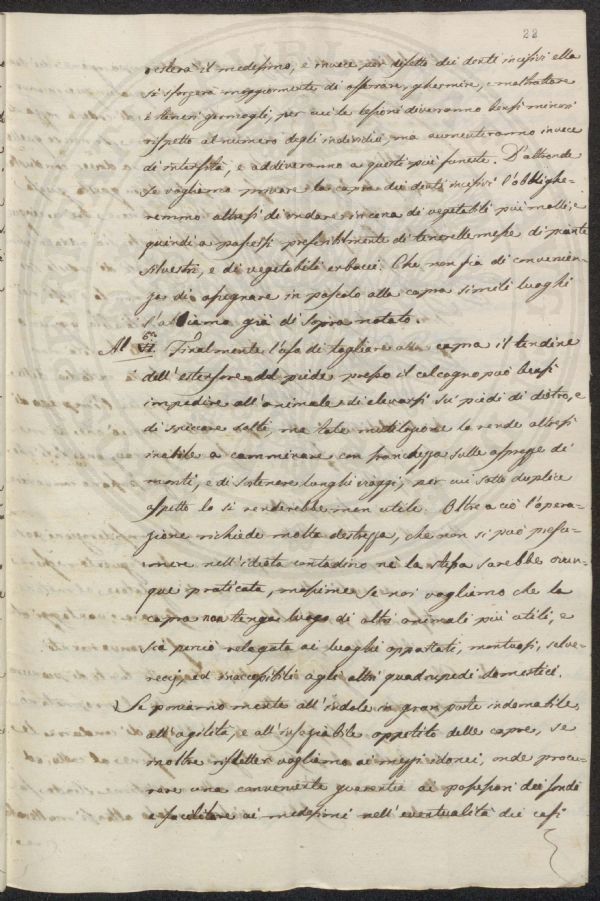 22
resterà il medesimo, e invece per difetto dei denti incisivi ella
si sforzerà maggiormente di afferrare, ghermire, e maltrattare
i teneri germogli, per cui le lesioni diveranno bensì minori
rispetto al numero degli individui, ma aumenteranno invece
di intensità, e addiveranno a questi più funeste. D'altronde
se vogliamo privare la capra dei denti incisivi l'obblighe-
remmo altresì di andare in cerca di vegetabili più molli, e
quindi a pascersi preferibilmente di tenerelle messe di piante
silvestri, e di vegetabili erbacei. Che non sia di convenien-
za di assegnare in pascolo alla capra simili luoghi
l'abbiamo già di sopra notato.
Al VI.° Finalmente l'uso di tagliare alla capra il tendine
dell'estensore del piede presso il calcagno può bensì
impedire all'animale di elevarsi su piedi di dietro, e
di spiccare salti, ma tale mutilazione la rende altresì
inabile a camminare con franchezza sulle asprezze di
monti, e di sostenere lunghi viaggi, per cui sotto duplice
aspetto lo si renderebbe men utile. Oltre a ciò l'opera-
zione richiede molta destrezza, che non si può presu-
mere nell'idiota contadino nè la stessa sarebbe ovun-
que praticata, massime se noi vogliamo che la
capra non tenga luogo di altri animali più utili, e
sia perciò relegata ai luoghi appartati, montuosi, selve-
recci, ed inaccessibili agli altri quadrupedi domestici.
Se poniamo mente all'indole in gran parte indomabile,
all'agilità, e all'insaziabile appetito delle capre, se
inoltre rifletter vogliamo ai mezzi idonei, onde procu-
rare una conveniente guarentia ai possessori dei fondi
e facilitare ai medesimi nell'eventualità dei casi